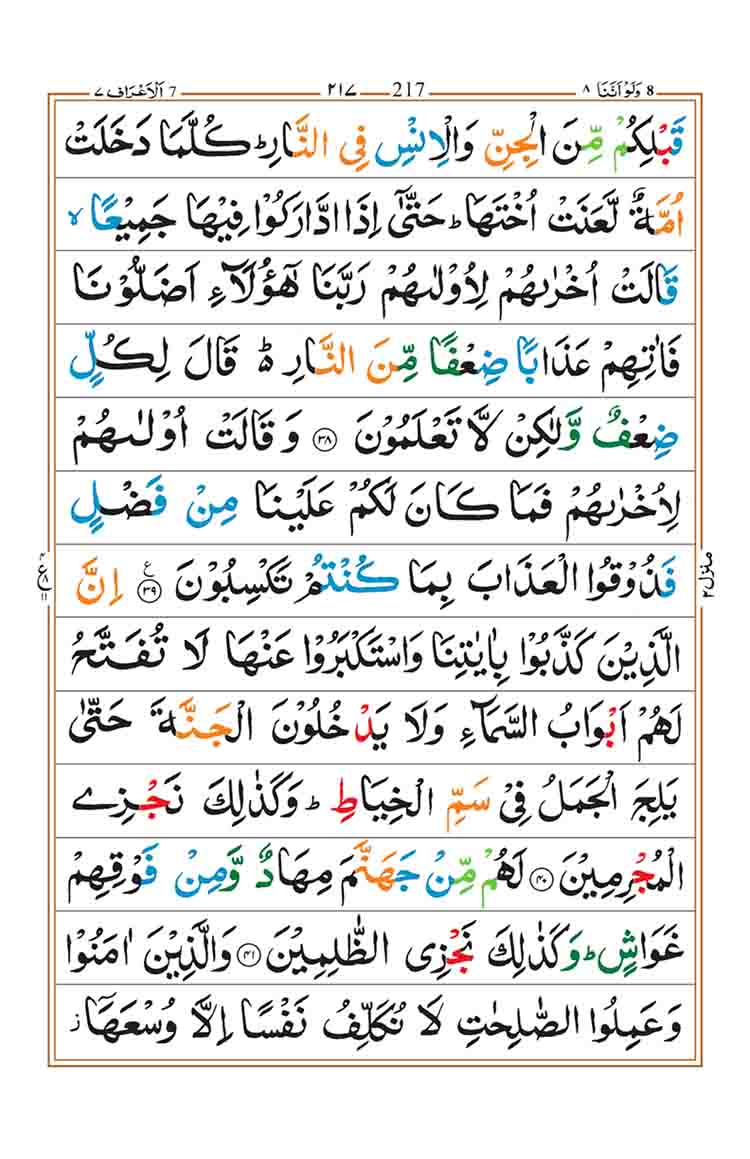 8 وَلَوْ اَنَّنَا ٨ 217 ٢١٧ 7 اَلْاَعْرَاف ٧
قَبْلِكُمْ مِّنَ الْجِنِّ وَالْاِنْسِ فِى النَّارِ ؕ كُلَّمَا دَخَلَتْ
اُمَّةٌ لَّعَنَتْ اُخْتَهَا ؕ حَتّٰۤى اِذَا ادَّارَكُوْا فِيْهَا جَمِيْعًا ۙ
قَالَتْ اُخْرٰىهُمْ لِاُوْلٰىهُمْ رَبَّنَا هٰۤؤُلَآءِ اَضَلُّوْنَا
فَاٰتِهِمْ عَذَابًا ضِعْفًا مِّنَ النَّارِ ؕ۬ قَالَ لِكُلٍّ
ضِعْفٌ وَّلٰكِنْ لَّا تَعْلَمُوْنَ ٣٨ وَقَالَتْ اُوْلٰىهُمْ
لِاُخْرٰىهُمْ فَمَا كَانَ لَكُمْ عَلَيْنَا مِنْ فَضْلٍ
فَذُوْقُوا الْعَذَابَ بِمَا كُنْتُمْ تَكْسِبُوْنَ ٣٩ ع اِنَّ
الَّذِيْنَ كَذَّبُوْا بِاٰيٰتِنَا وَاسْتَكْبَرُوْا عَنْهَا لَا تُفَتَّحُ
لَهُمْ اَبْوَابُ السَّمَآءِ وَلَا يَدْخُلُوْنَ الْجَنَّةَ حَتّٰى
يَلِجَ الْجَمَلُ فِىْ سَمِّ الْخِيَاطِ ؕ وَكَذٰلِكَ نَجْزِى
الْمُجْرِمِيْنَ ٤٠ لَهُمْ مِّنْ جَهَنَّمَ مِهَادٌ وَّمِنْ فَوْقِهِمْ
غَوَاشٍ ؕ وَكَذٰلِكَ نَجْزِى الظّٰلِمِيْنَ ٤١ وَالَّذِيْنَ اٰمَنُوْا
وَعَمِلُوا الصّٰلِحٰتِ لَا نُكَلِّفُ نَفْسًا اِلَّا وُسْعَهَاۤ ز
منزل ٢
ع ٤ ٨ ١١